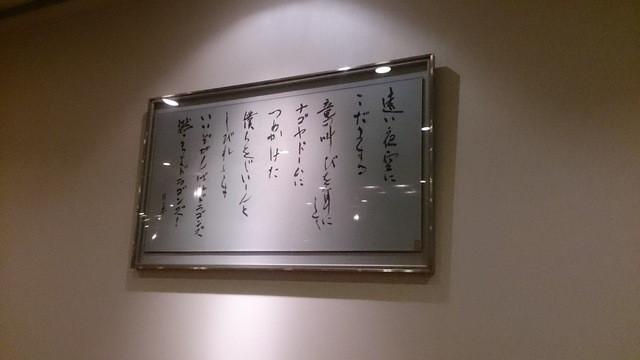 遠い夜空に
こだまする
竜の叫びを耳にして
ナゴヤドームに
つめかけた
僕らをじいーんと
しびれさせる
いいぞがんばれドラゴンズ
燃えよドラゴンズ!